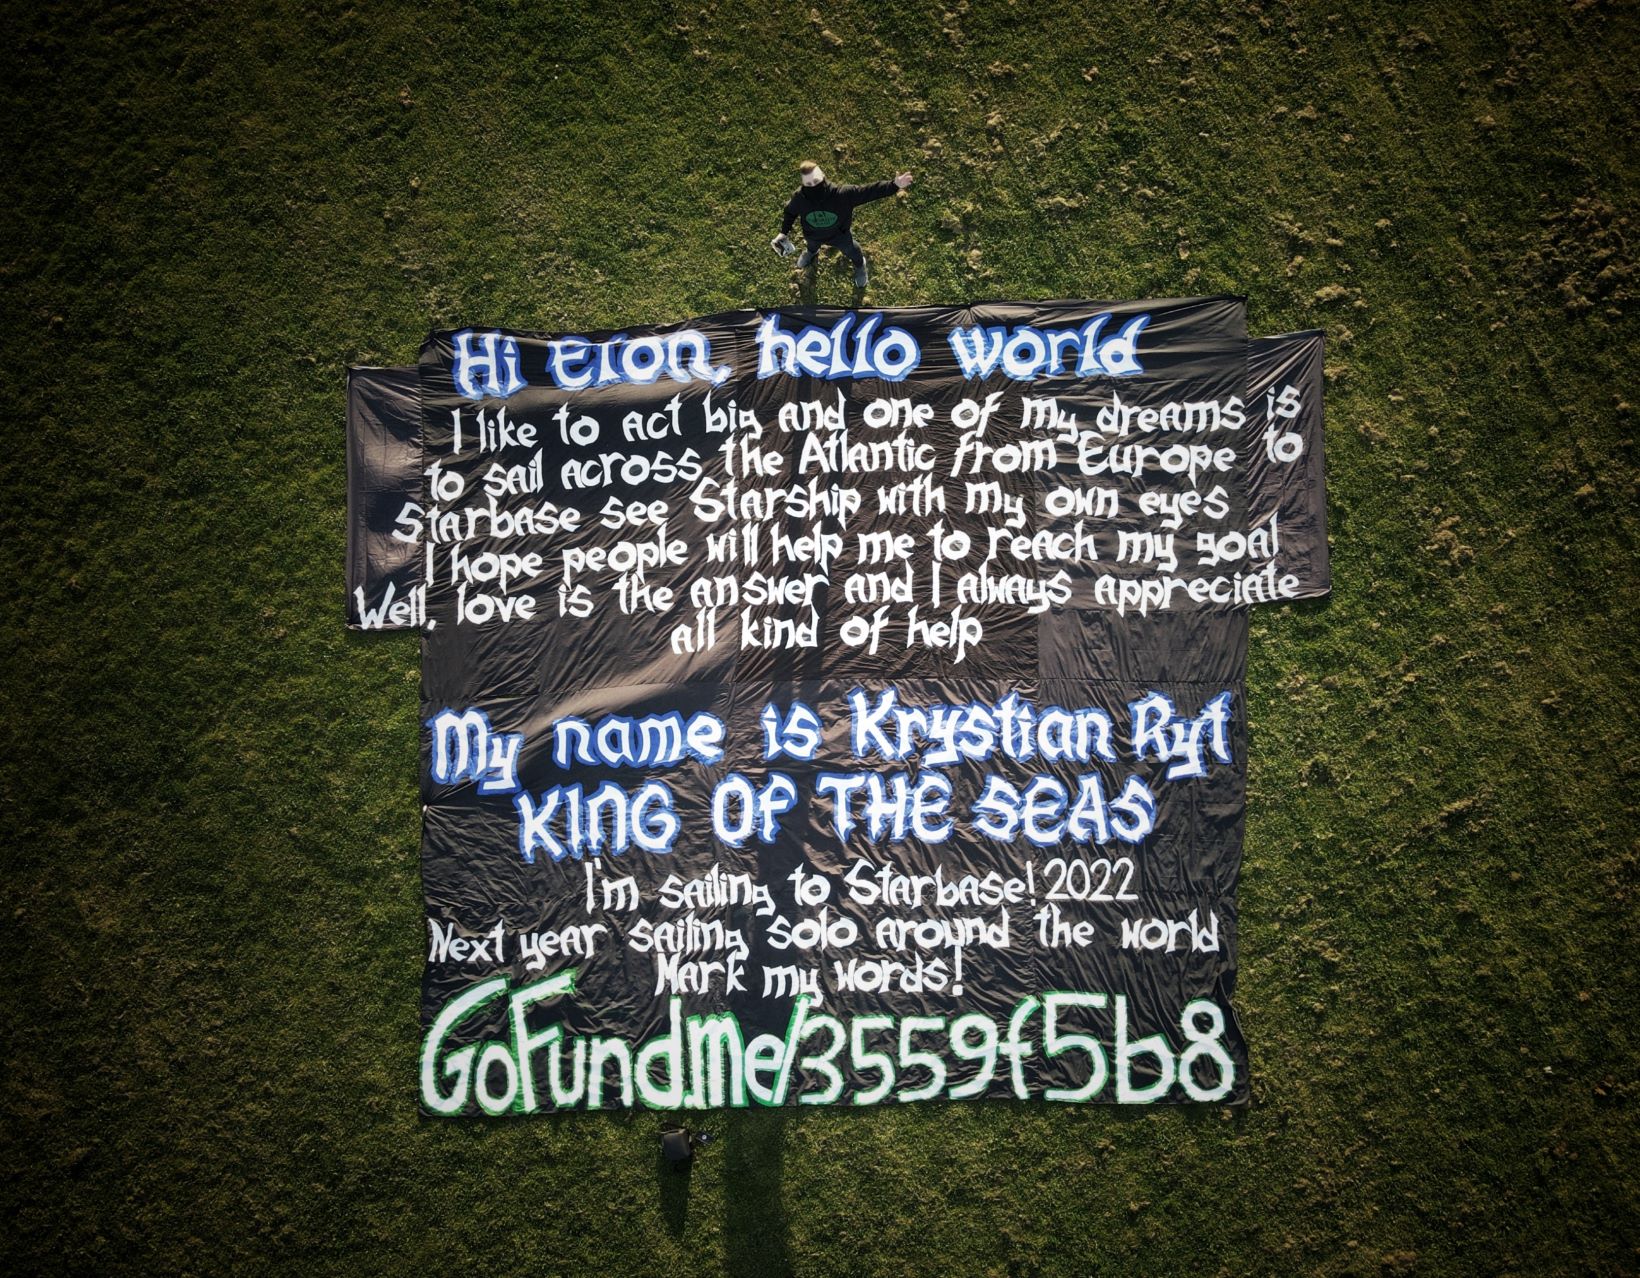 Hi Elon, hello world
I like to act big and one of my dreams is
to sail across the Atlantic from Europe to
Starbase see Starship with my own eyes
I hope people will help me to reach my goal
Well, love is the answer and I always appreciate
all kind of help
My name is Krystian Ryt
KING OF THE SEAS
I'm sailing to Starbase! 2022
Next year sailing solo around the world
Mark my words!
GoFund.me/3559f5b8